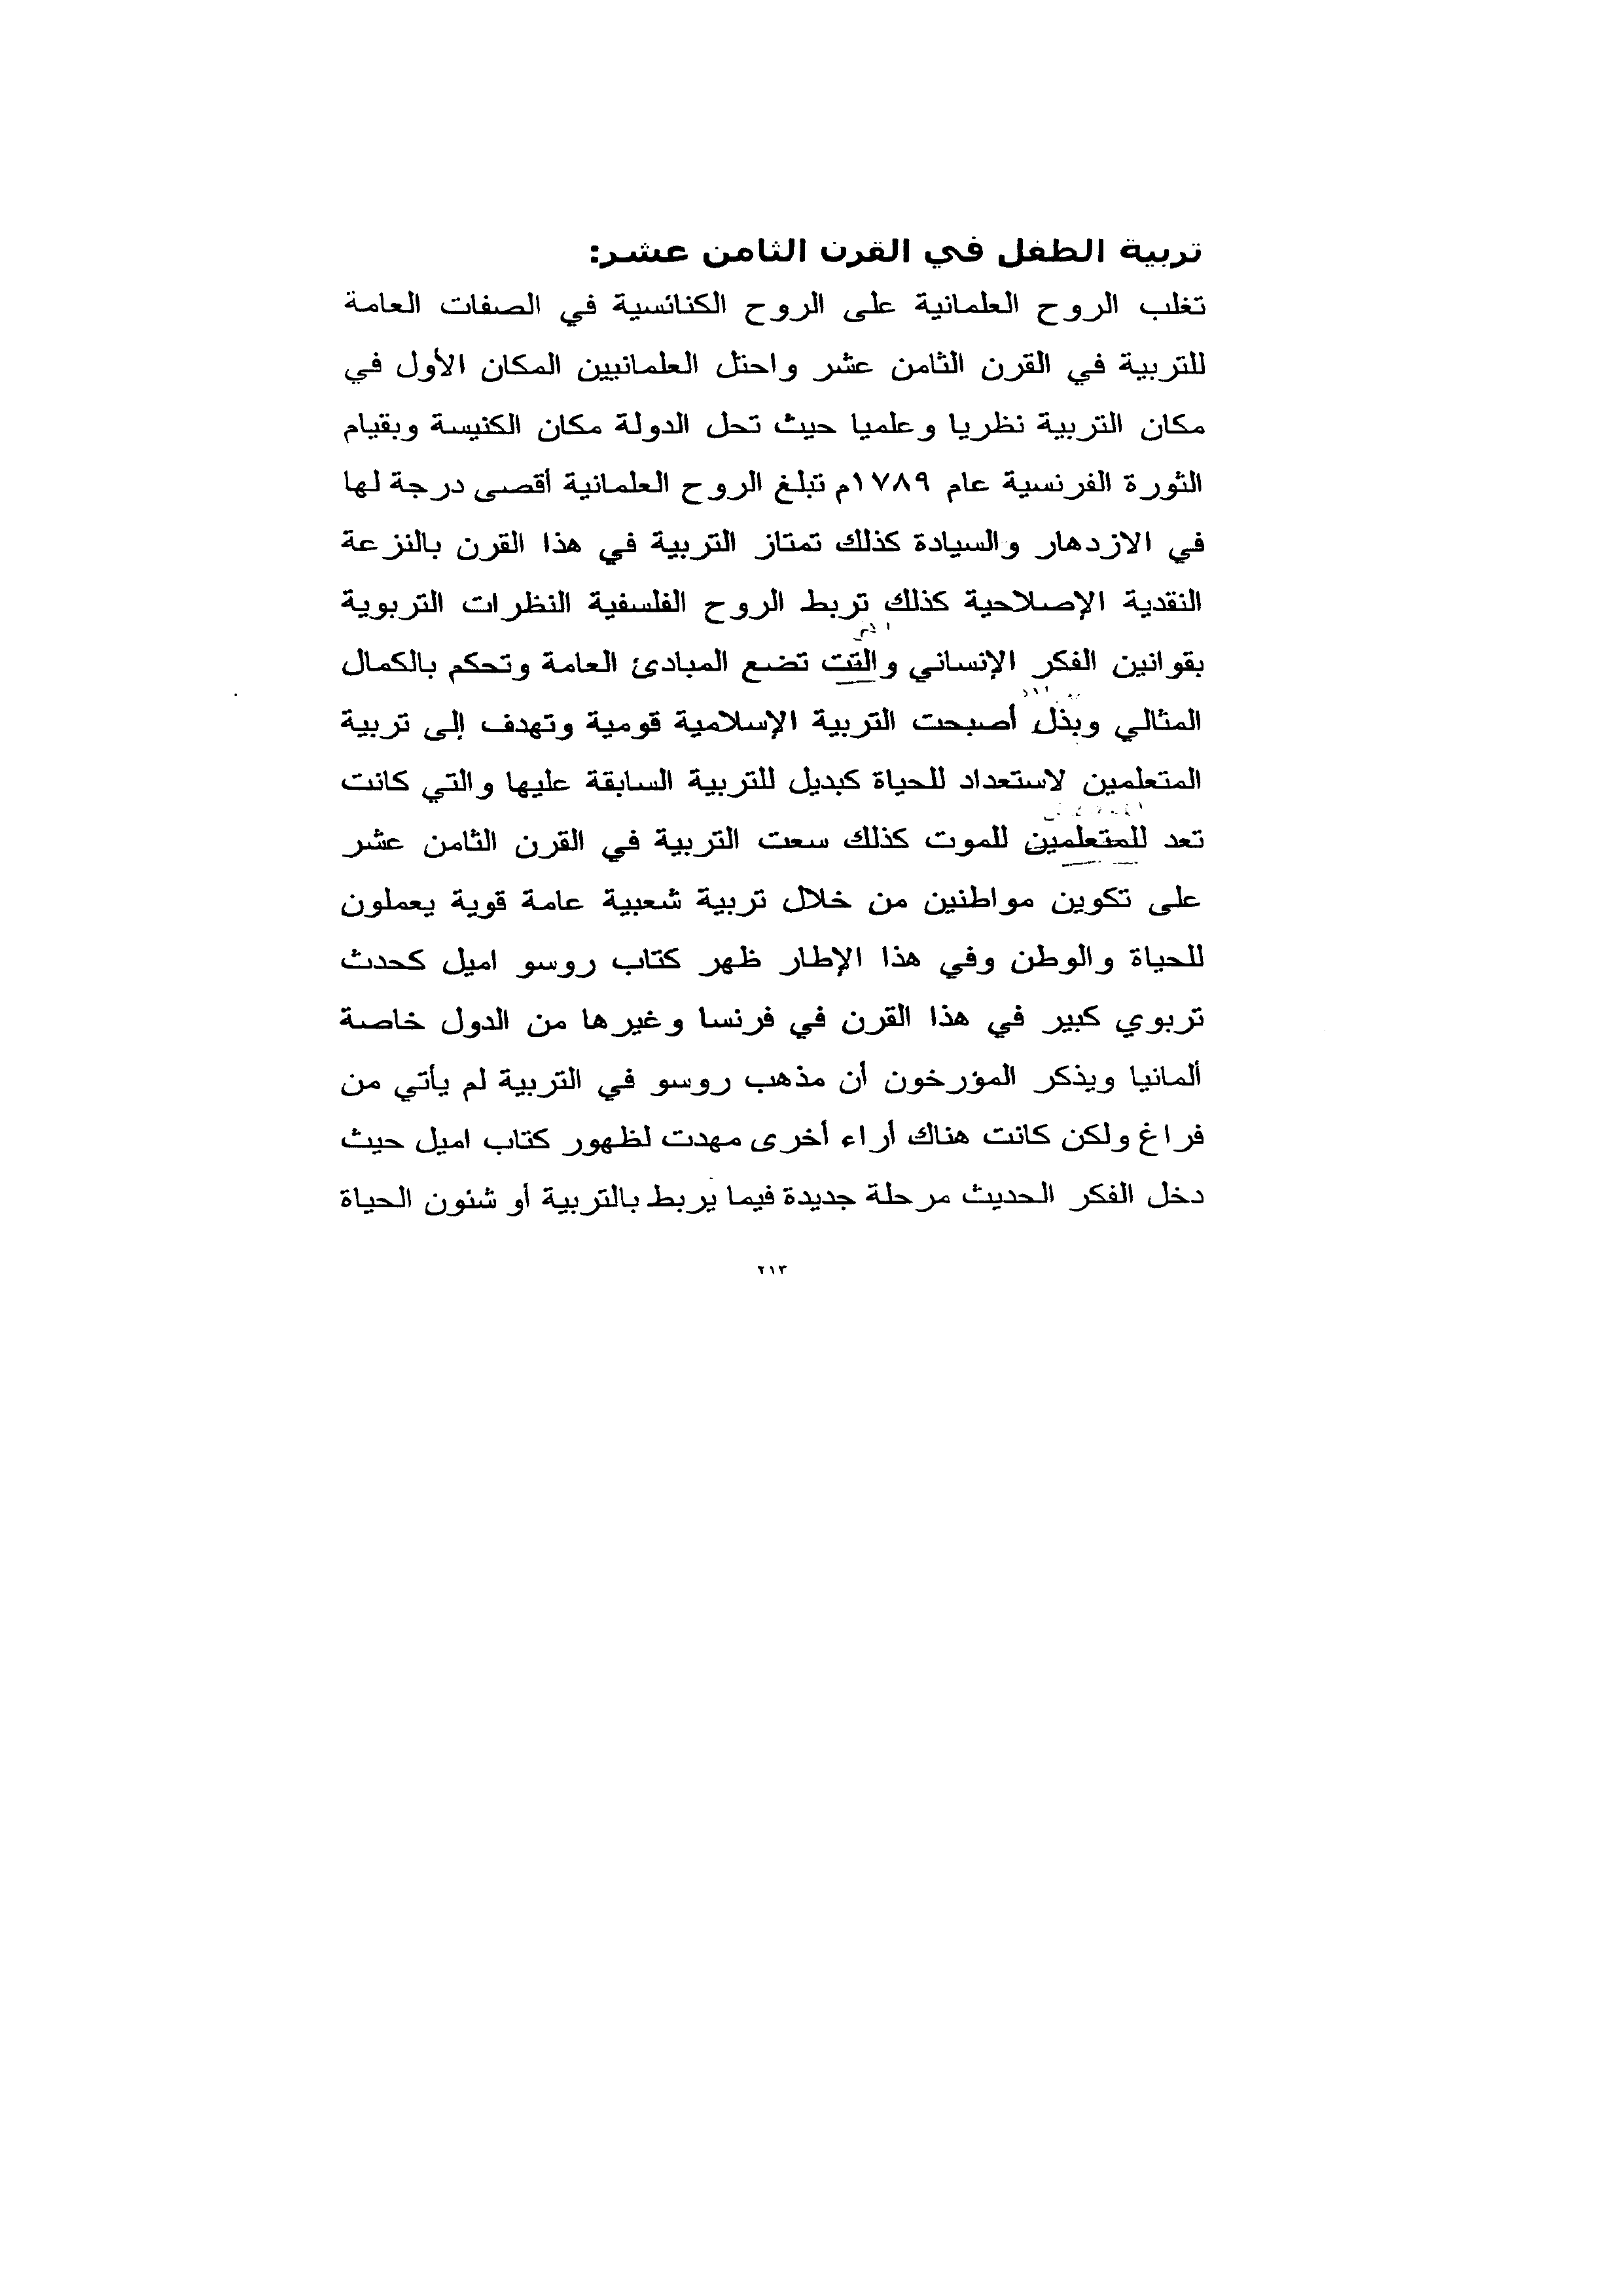 تربية الطفل في القرن الثامن عشر:
تغلب الروح العلمانية على الروح الكنائسية في الصفات العامة
للتربية في القرن الثامن عشر واحتل العلمانيين المكان الأول في
مكان التربية نظريا وعلميا حيث تحل الدولة مكان الكنيسة وبقيام
الثورة الفرنسية عام ١٧٨٩م تبلغ الروح العلمانية أقصى درجة لها
في الازدهار والسيادة كذلك تمتاز التربية في هذا القرن بالنزعة
النقدية الإصلاحية كذلك تربط الروح الفلسفية النظرات التربوية
بقوانين الفكر الإنساني والتت تضع المبادئ العامة وتحكم بالكمال
المثالي وبذل أصبحت التربية الإسلامية قومية وتهدف إلى تربية
المتعلمين لاستعداد للحياة كبديل للتربية السابقة عليها والتي كانت
تعد للمتعلمين للموت كذلك سعت التربية في القرن الثامن عشر
على تكوين مواطنين من خلال تربية شعبية عامة قوية يعملون
للحياة والوطن وفي هذا الإطار ظهر كتاب روسو اميل كحدث
تربوي كبير في هذا القرن في فرنسا وغيرها من الدول خاصة
ألمانيا ويذكر المؤرخون أن مذهب روسو في التربية لم يأتي من
فراغ ولكن كانت هناك أراء أخرى مهدت لظهور كتاب اميل حيث
دخل الفكر الحديث مرحلة جديدة فيما يربط بالتربية أو شئون الحياة
٢١٣